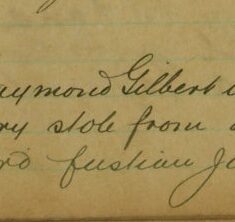 aymond Gilbert
ry stole from a
rd fustian Ja